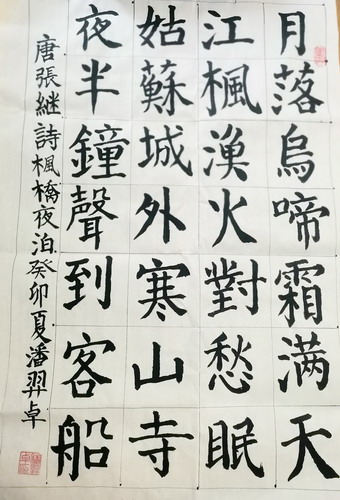 月落烏啼霜满天
江楓漁火對愁眠
姑蘇城外寒山寺
夜半鐘聲到客船
唐張継詩楓橋夜泊癸卯夏潘羿卓